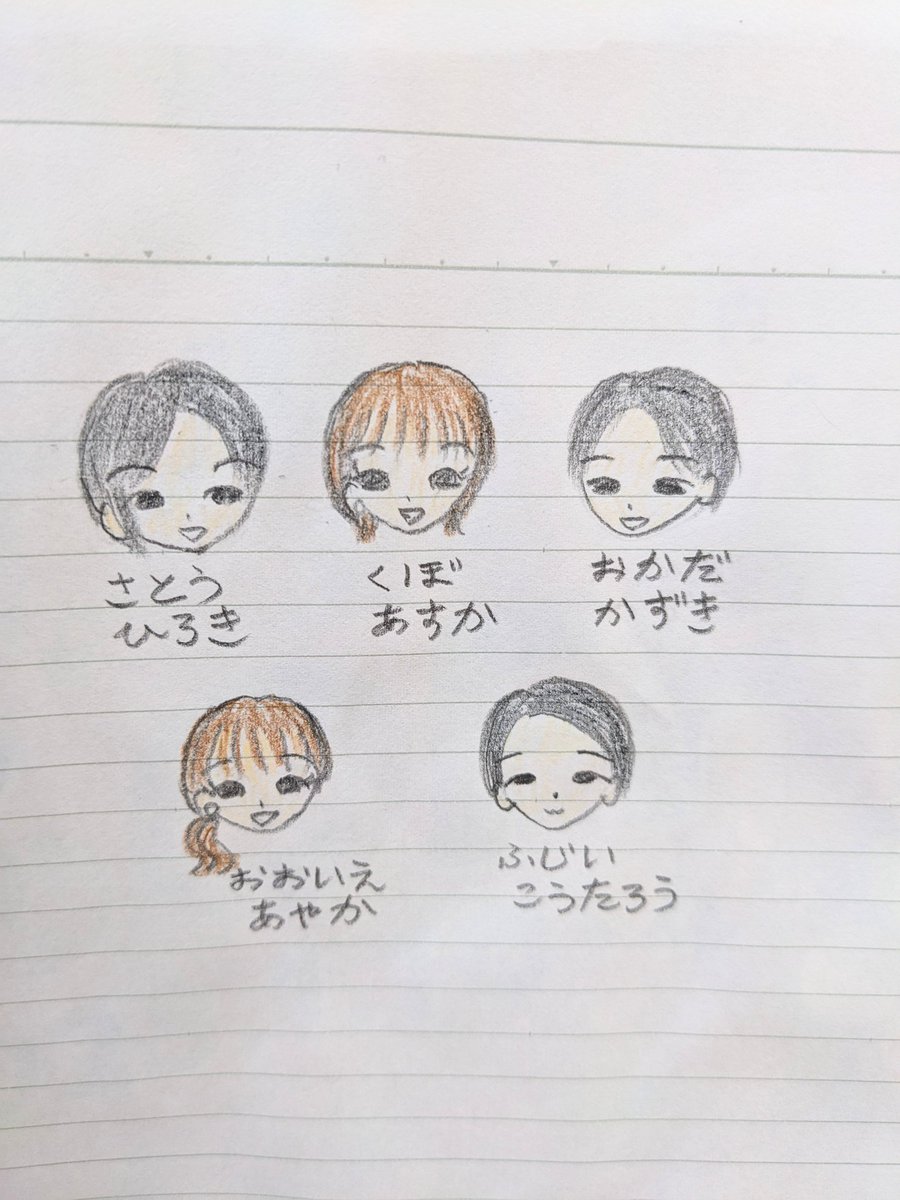 さとう
ひろき
くぼ
あすか
おかだ
かずき
おおいえ
あやか
ふじい
こうたろう